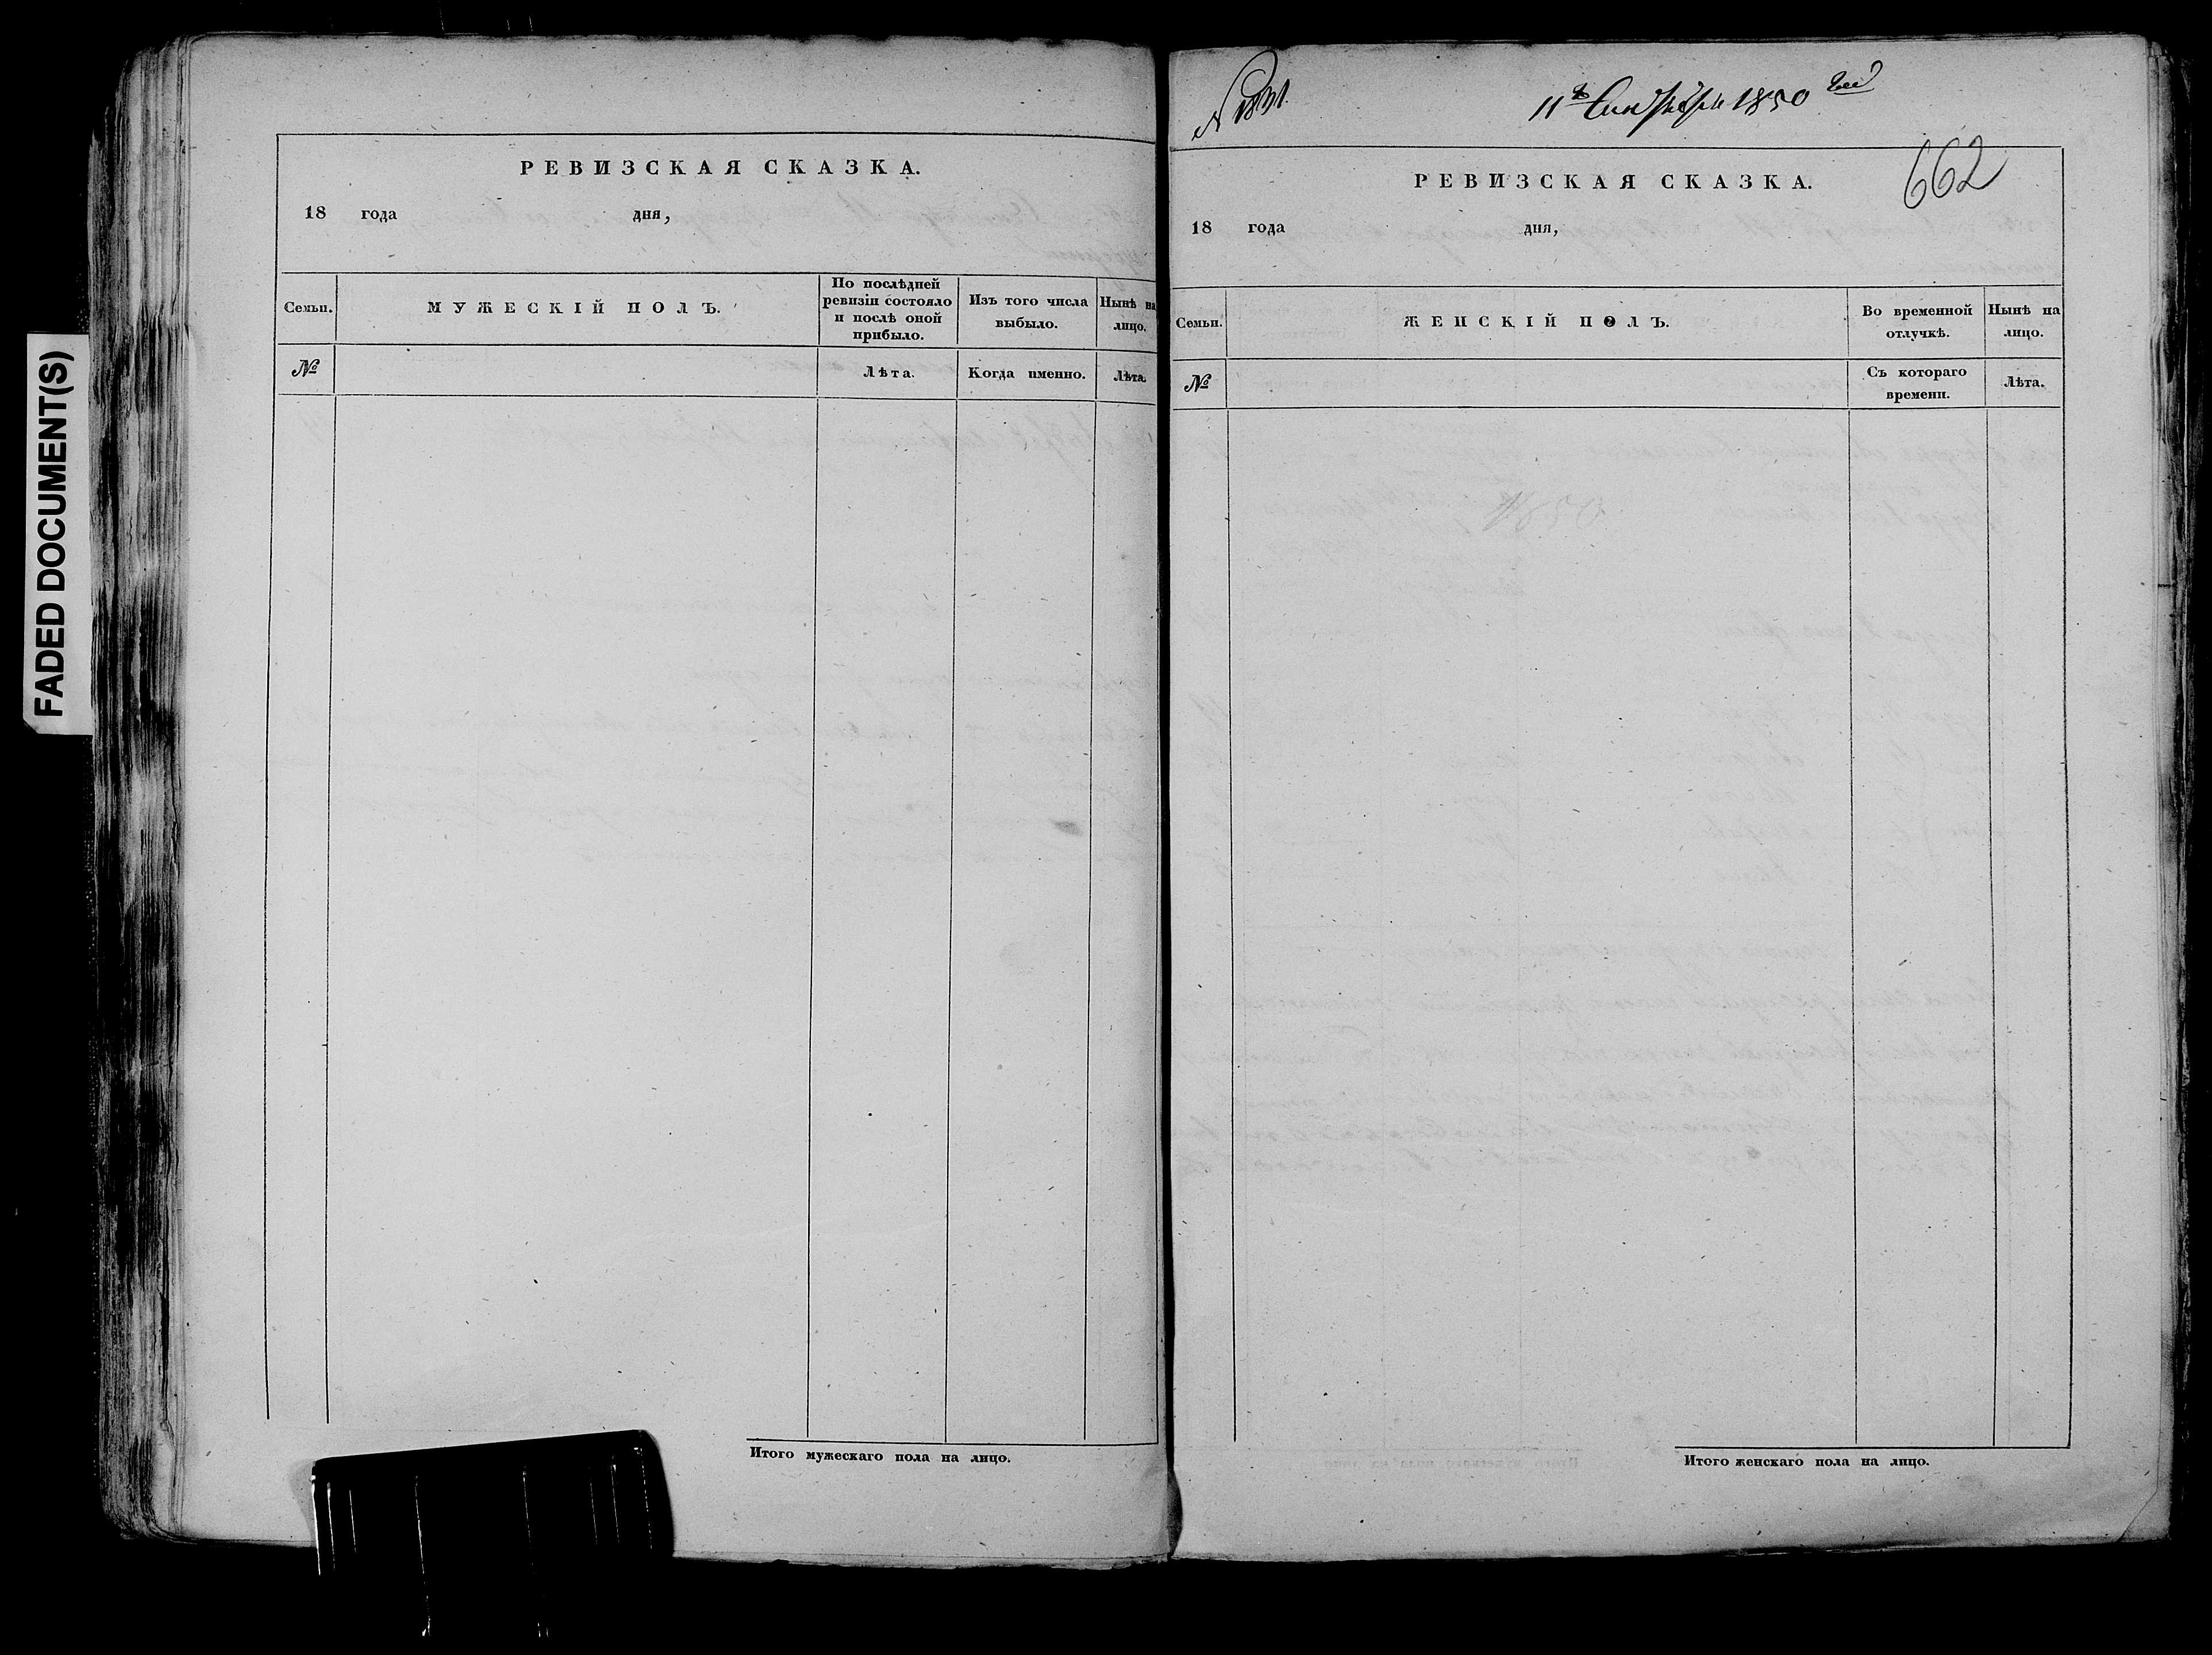 FADED DOCUMENT(S)
РЕВИЗСКАЯ СКАЗКА.
18 года дня,
Семьи. МУЖЕСКІЙ ПОЛЪ. По послѣдней ревизіи состояло и послѣ оной прибыло. Изъ того числа выбыло. Нынѣ на лицо.
№ Лѣта. Когда именно. Лѣта.
Итого мужескаго пола на лицо.
11 Сентября 1850
662
РЕВИЗСКАЯ СКАЗКА.
18 года дня,
Семьи. ЖЕНСКІЙ ПОЛЪ. Во временной отлучкѣ. Нынѣ на лицо.
№ Съ котораго времени. Лѣта.
1850
Итого женскаго пола на лицо.